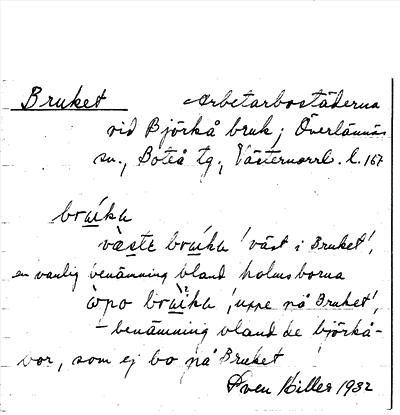 Bruket Arbetarbostäderna
vid Björkå bruk; Överlännäs
sn., Boteå tg, Västernorrl. l. 167
braíka
vàeste braíka 'väst i Bruket',
en vanlig benämning bland holmsborna
òpo braìka 'uppe på Bruket',
– benämning bland de björkå-
bor, som ej bo på Bruket
Sven Hillee 1932